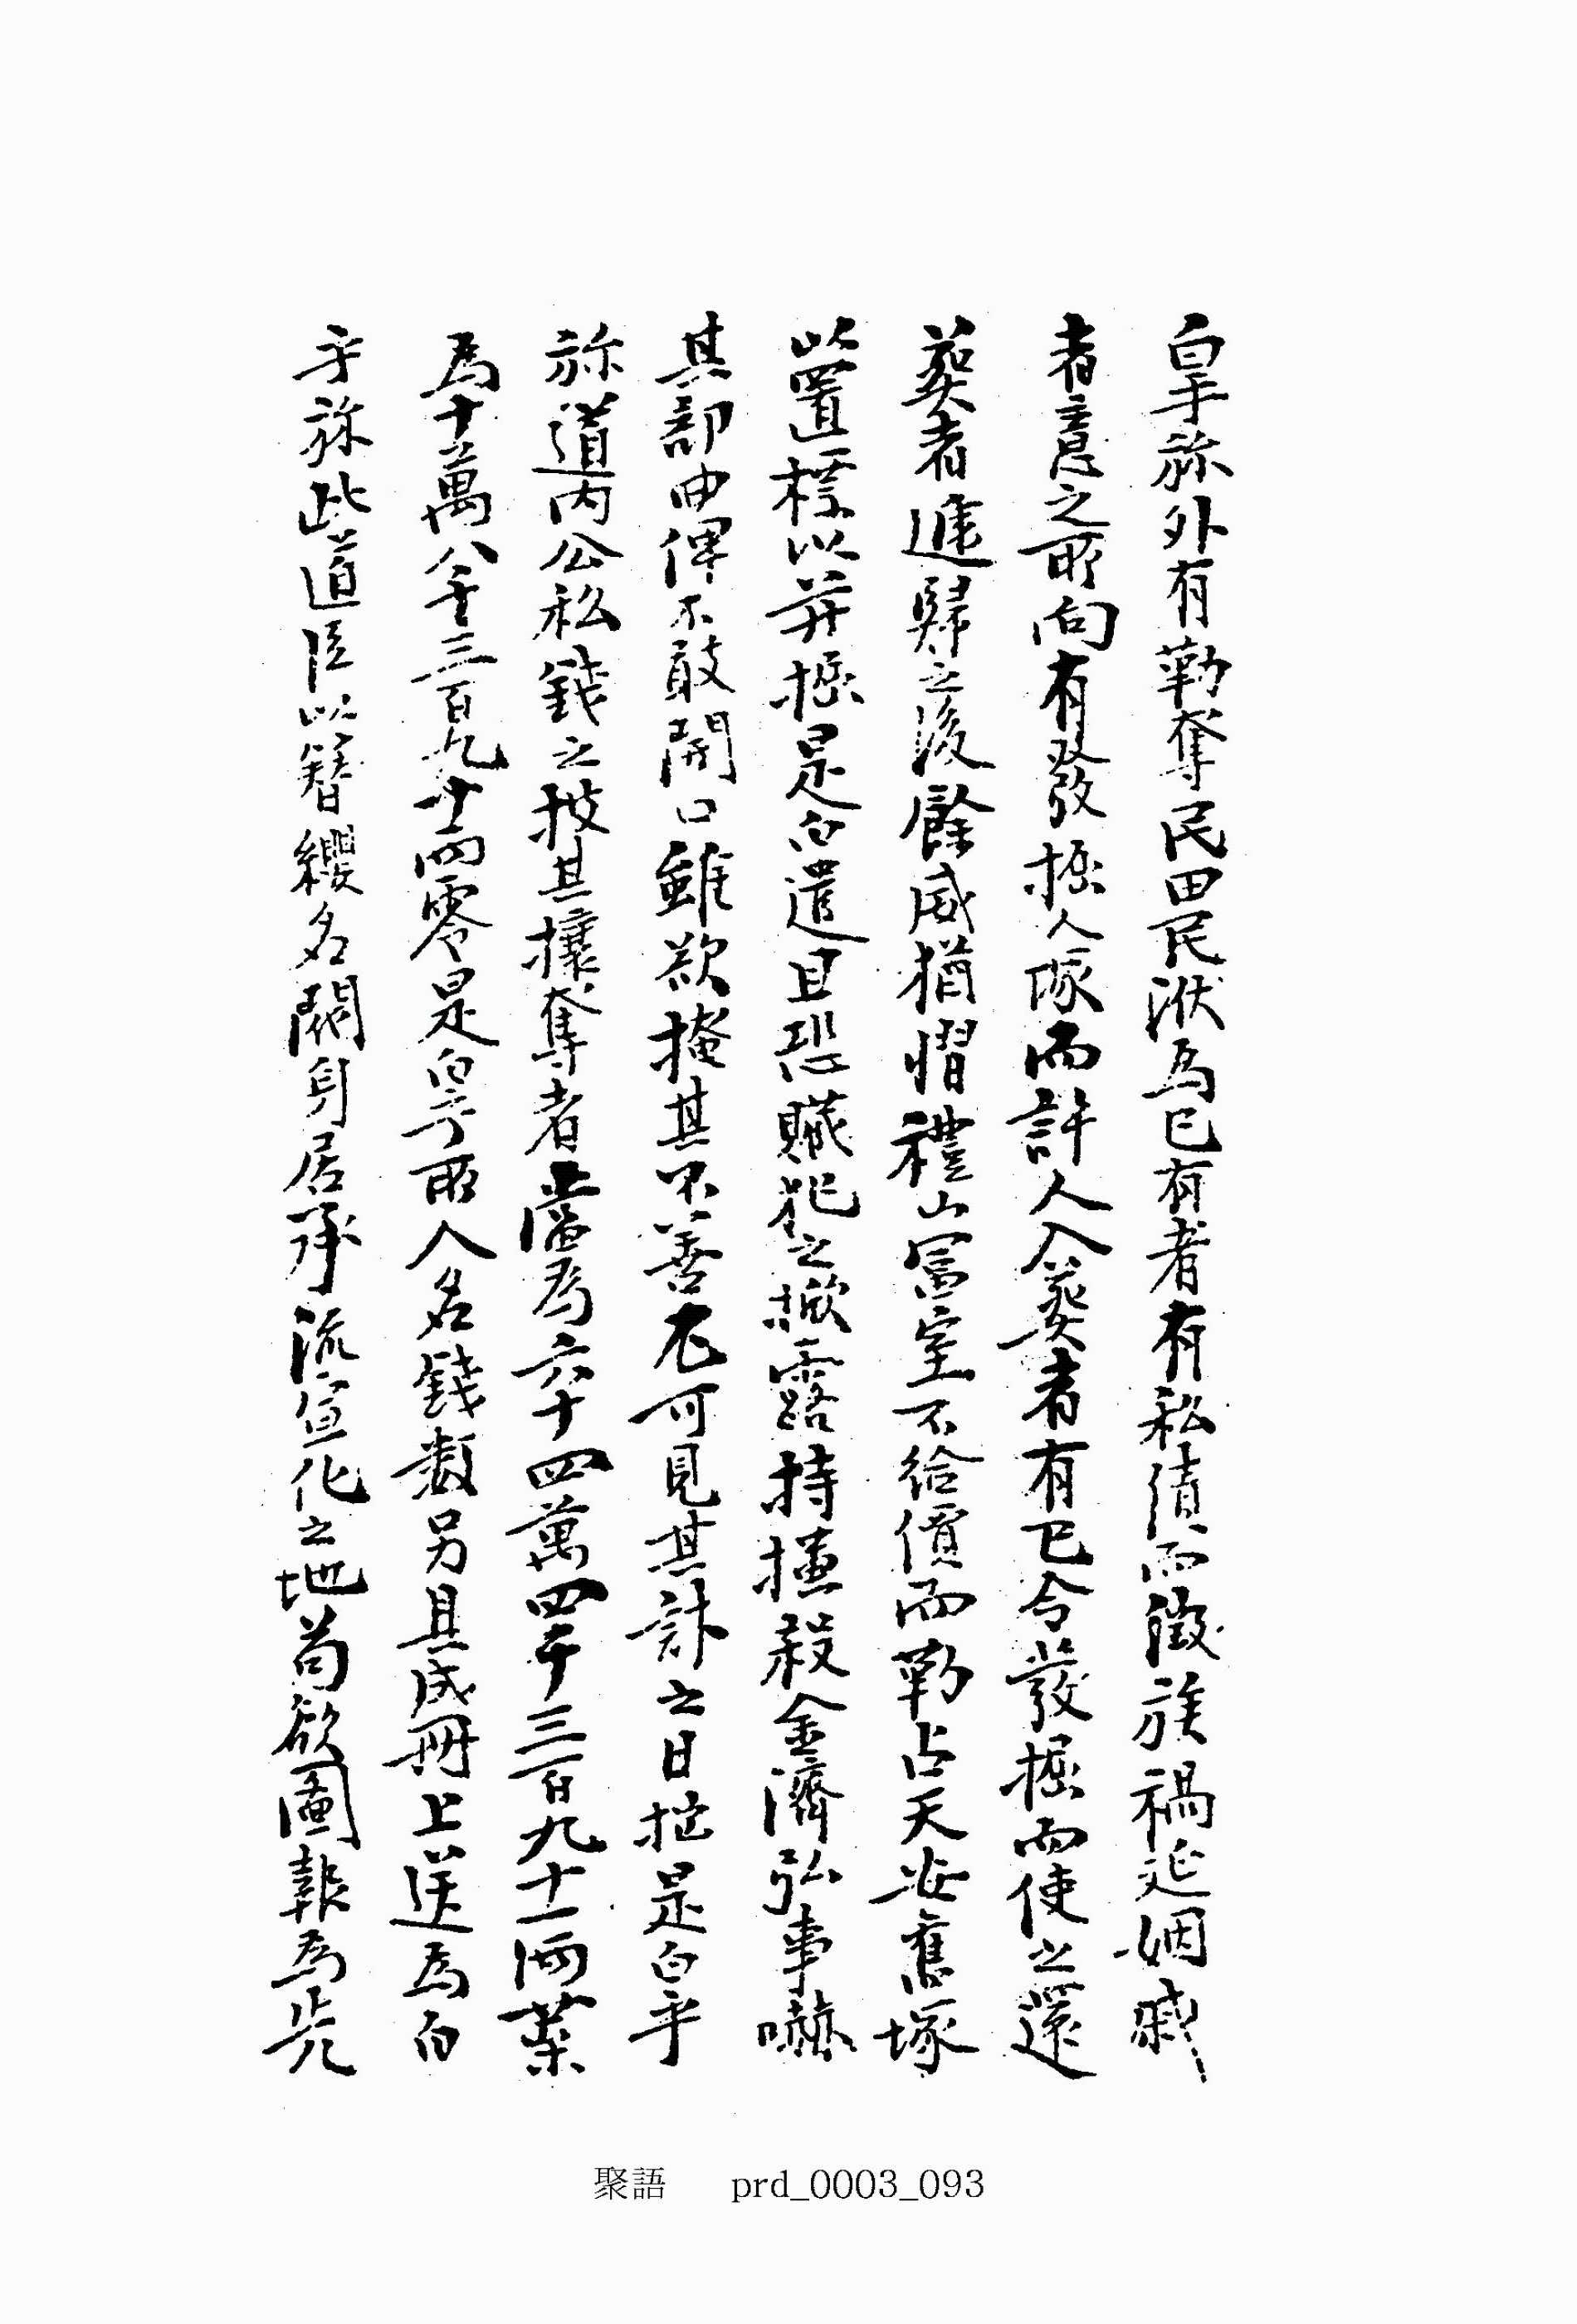 白乎旀外有勒奪民田民洑爲已有者有私債而徵族禍延姻戚
者意之所向有發掘人塚而許人入葬者有已令發掘而使之還
葬者遞歸之後餘威猶慴禮山富室不給價而勒占天安舊塚
以置標以莽掘是白遣且恐贓犯之掀露持撻殺金濟弘事嚇
其部曲俾不敢開口雖欲掩其不善尤可見其計之日拙是白乎
旀道內公私錢之被其攘奪者當爲六十四萬四千三百九十一兩葉
爲十萬八千三百九十兩零是白乎所人名錢數另具成冊上送爲白
乎旀此道段以簪纓名閥身居承流宣化之地苟欲圖報爲先
聚語 prd_0003_093